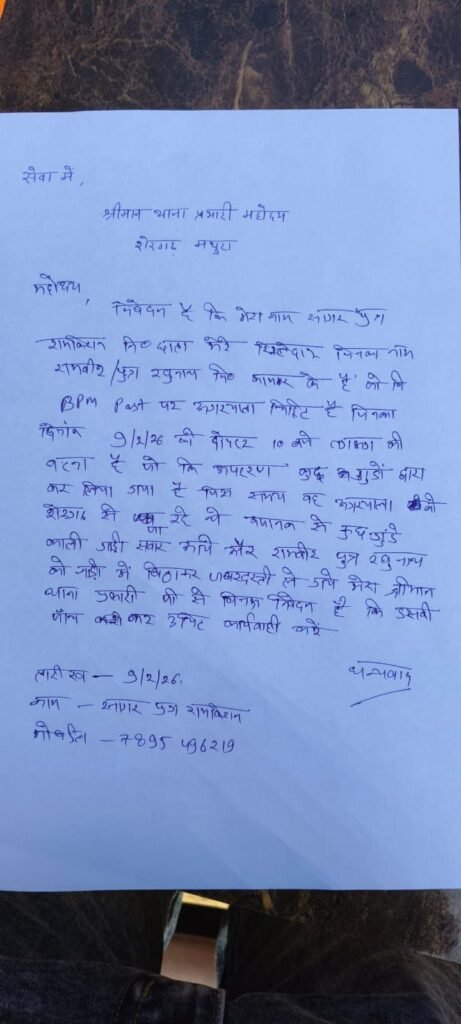 सेवा में,
श्रीमान थाना प्रभारी महोदय
शेरगढ़ मथुरा
महोदय,
निवेदन है कि मेरा नाम सागर पुत्र
रामकिशन नि० मेरे रिश्तेदार जिनका नाम
रामवीर / पुत्र रघुनाथ नि० के है जो कि
BPM Post पर अगरयाला है जिनका
दिनांक 9/2/26 की दोपहर 10 बजे की
घटना है जो कि अपहरण कुछ गुंडों द्वारा
कर लिया गया है जिस समय वह अगरयाला
शेरगढ़ से जा रहे थे अचानक से कुछ गुंडे
काली गाड़ी सवार आये और रामवीर पुत्र रघुनाथ
को गाड़ी में बिठाकर जबरदस्ती ले गये मेरा श्रीमान
थाना प्रभारी जी से विनम्र निवेदन है कि इसकी
जाँच कर उचित कार्यवाही करें
धन्यवाद
तारीख – 9/2/26.
नाम – सागर पुत्र रामकिशन
मोबाईल – 7895 496219